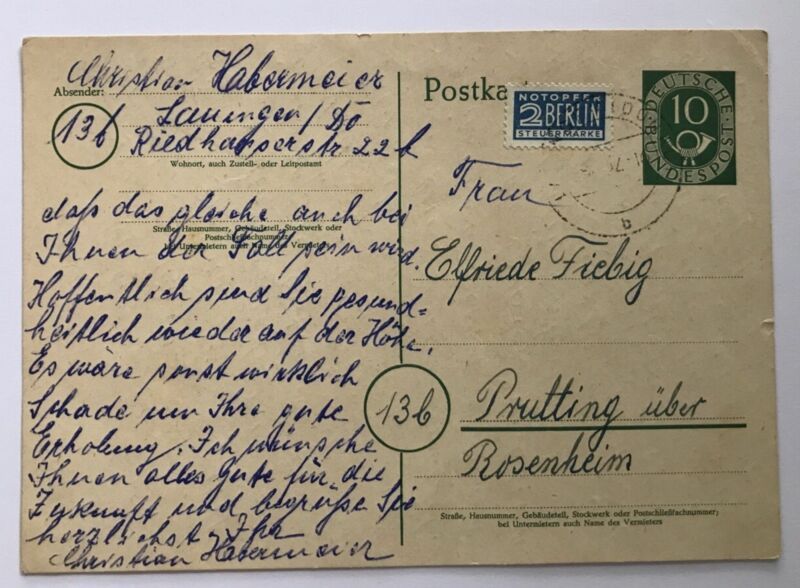 Christian Habermeier
Absender:
13b
Lauingen/Do
Riedhauserstr 22b
Wohnort, auch Zustell- oder Leitpostamt
daß das gleiche auch bei
Straße, Hausnummer, Gebäudeteil, Stockwerk oder
Postschließfachnummer;
bei Untermietern auch Name des Vermieters
Ihnen der Fall sein wird.
Hoffentlich sind Sie gesund=
heitlich wieder auf der Höhe.
Es wäre sonst wirklich
Schade um Ihre gute
Erholung. Ich wünsche
Ihnen alles gute für die
Zukunft und begrüße Sie
herzlichst Ihr
Christian Habermeier
Postka
NOTOPFER
2 BERLIN
STEUERMARKE
DEUTSCHE
10
BUNDESPOST
b
Frau
Elfriede Fiebig
13b
Prutting über
Rosenheim
Straße, Hausnummer, Gebäudeteil, Stockwerk oder Postschließfachnummer;
bei Untermietern auch Name des Vermieters